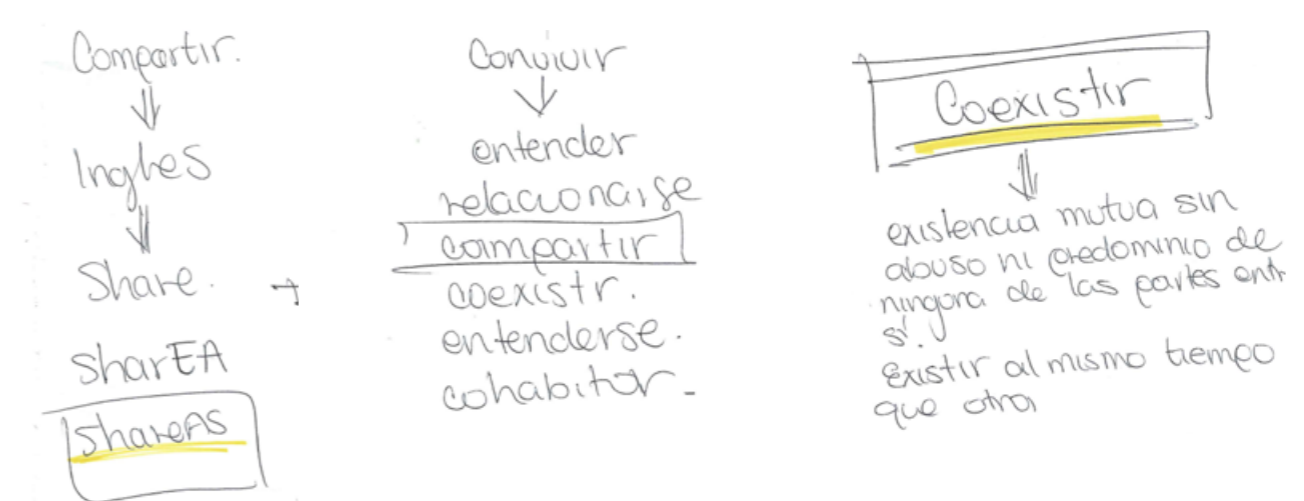 Compartir.
Inghes
Share.
sharEA
shareAS
Convivir
entender
relacionarse
compartir
coexistr.
entenderse.
cohabitar
Coexistir
existencia mutua sin
abuso ni predominio de
ninguna de las partes entr
sí.
Existir al mismo tiempo
que otra